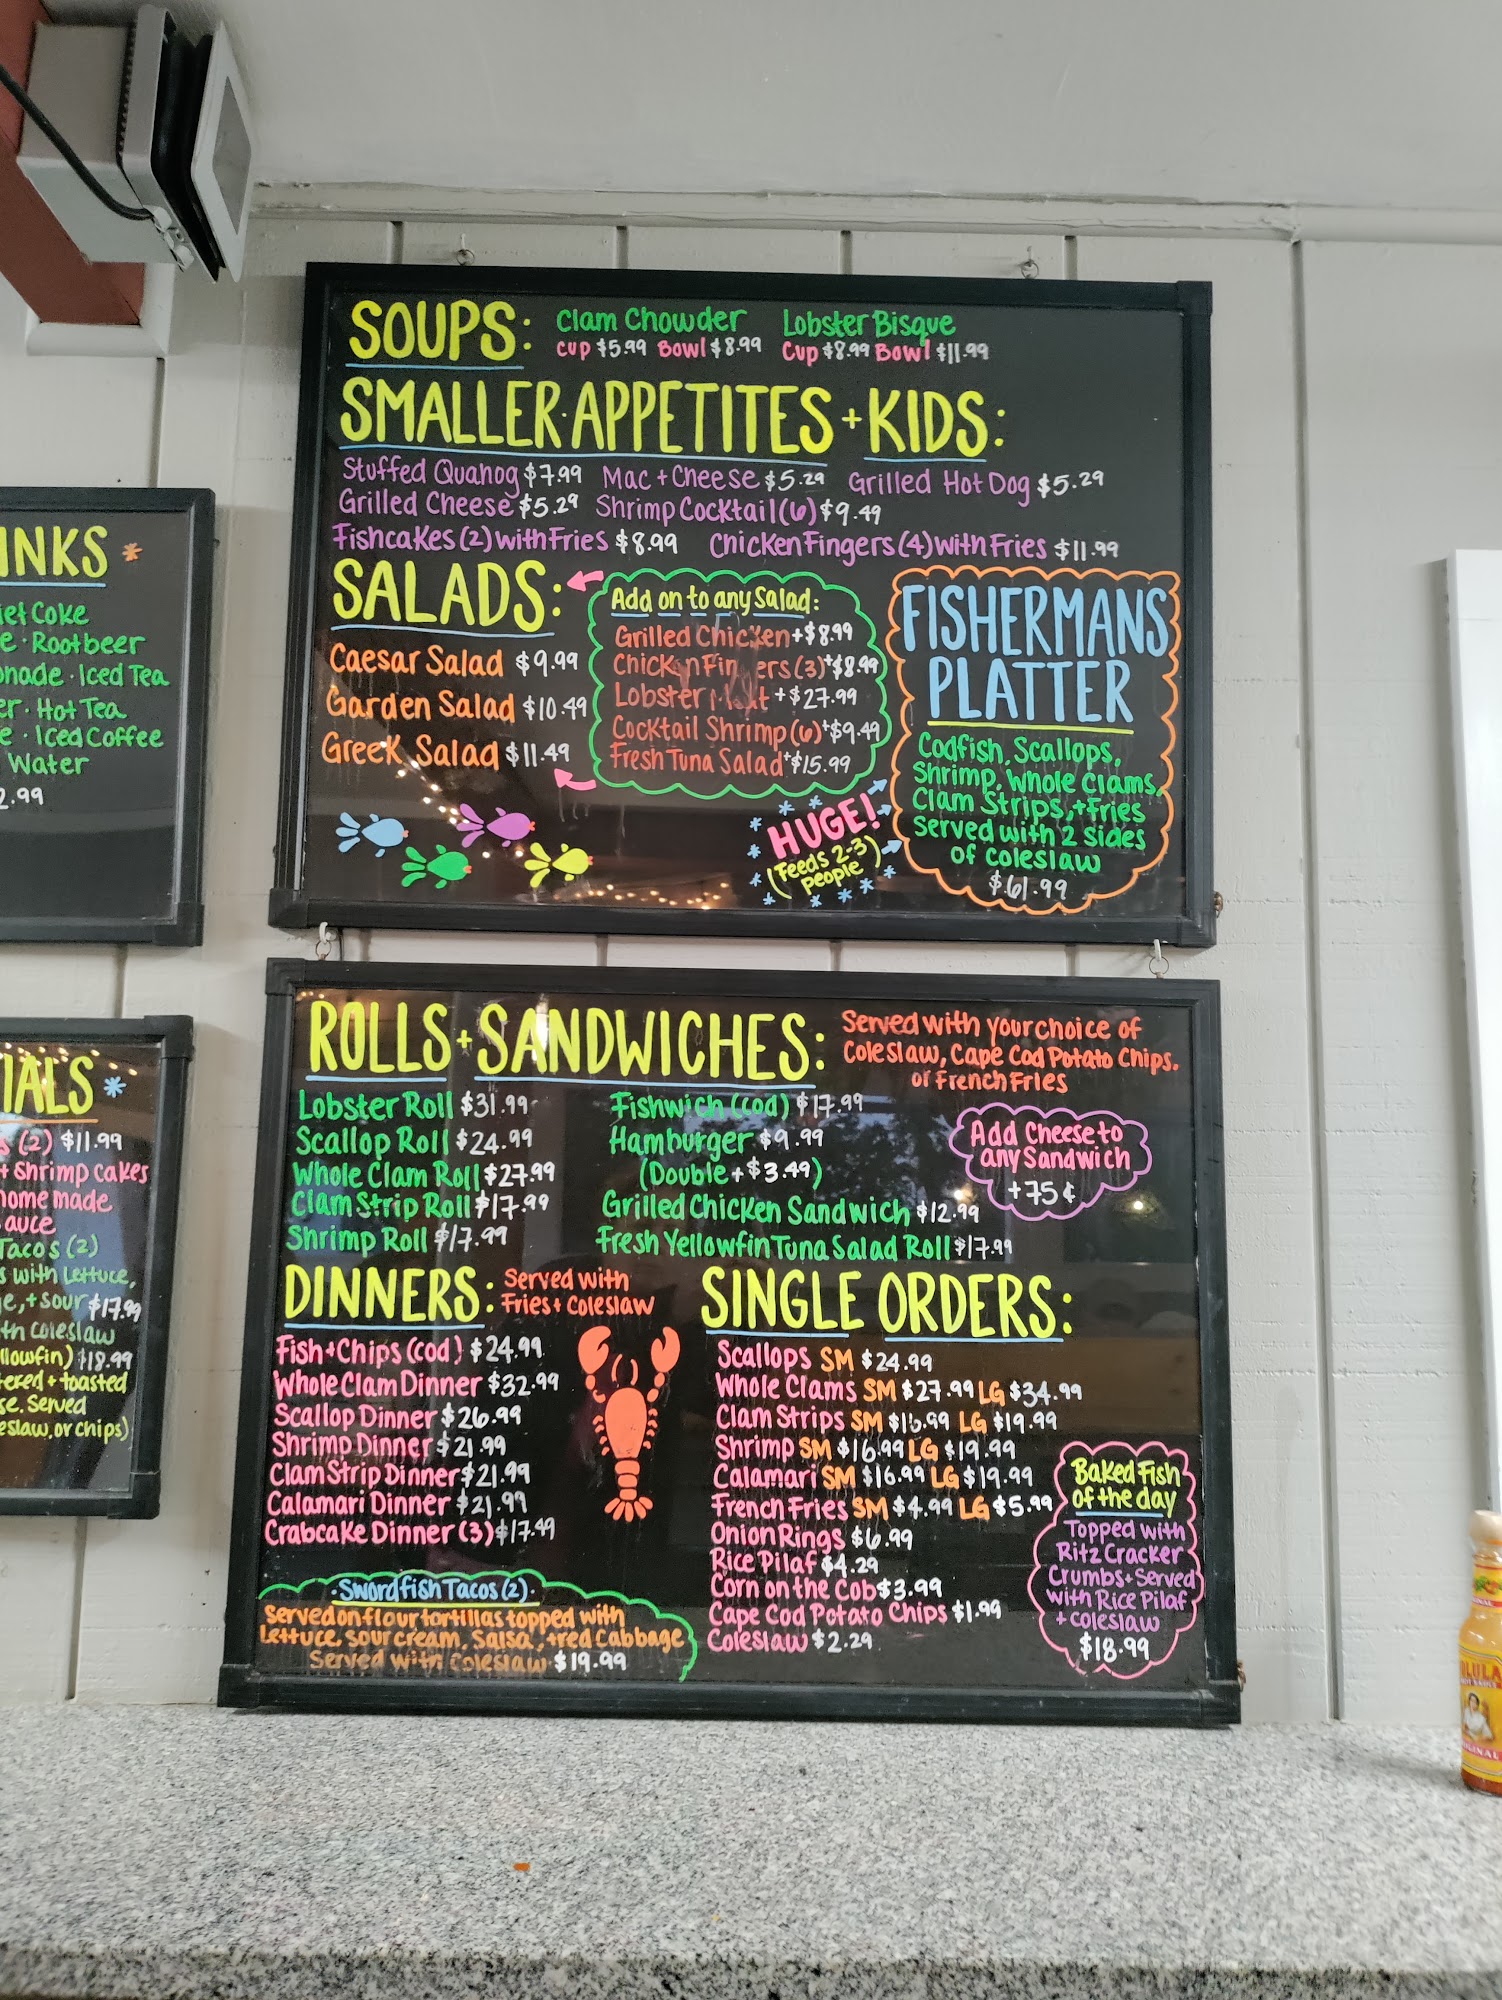 SOUPS: Clam Chowder Lobster Bisque
Cup $5.99 Bowl $8.99 Cup $8.99 Bowl $11.99
SMALLER APPETITES + KIDS:
Stuffed Quahog $7.99 Mac + Cheese $5.29 Grilled Hot Dog $5.29
Grilled Cheese $5.29 Shrimp Cocktail (6) $9.49
Fishcakes (2) with Fries $8.99 Chicken Fingers (4) with Fries $11.99
SALADS:
Caesar Salad $9.99
Garden Salad $10.49
Greek Salad $11.49
Add on to any Salad:
Grilled Chicken +$8.99
Chicken Fingers (3) +$8.99
Lobster Meat +$27.99
Cocktail Shrimp (6) +$9.49
Fresh Tuna Salad +$15.99
HUGE!
(Feeds 2-3
people)
FISHERMANS
PLATTER
Codfish, Scallops,
Shrimp, Whole Clams,
Clam Strips, + Fries
Served with 2 sides
of coleslaw
$61.99
ROLLS + SANDWICHES:
Served with your choice of
Coleslaw, Cape Cod Potato Chips,
or French Fries
Lobster Roll $31.99
Scallop Roll $24.99
Whole Clam Roll $27.99
Clam Strip Roll $17.99
Shrimp Roll $17.99
Fishwich (cod) $17.99
Hamburger $9.99
(Double + $3.49)
Grilled Chicken Sandwich $12.99
Fresh Yellowfin Tuna Salad Roll $17.99
Add Cheese to
any Sandwich
+75¢
DINNERS: Served with
Fries + Coleslaw
Fish + Chips (cod) $24.99
Whole Clam Dinner $32.99
Scallop Dinner $26.99
Shrimp Dinner $21.99
Clam Strip Dinner $21.99
Calamari Dinner $21.99
Crabcake Dinner (3) $17.49
Swordfish Tacos (2)
Served on flour tortillas topped with
Lettuce, sour cream, Salsa, + red Cabbage
Served with Coleslaw $19.99
SINGLE ORDERS:
Scallops SM $24.99
Whole Clams SM $27.99 LG $34.99
Clam Strips SM $16.99 LG $19.99
Shrimp SM $16.99 LG $19.99
Calamari SM $16.99 LG $19.99
French Fries SM $4.99 LG $5.99
Onion Rings $6.99
Rice Pilaf $4.29
Corn on the Cob $3.99
Cape Cod Potato Chips $1.99
Coleslaw $2.29
Baked Fish
of the day
Topped with
Ritz Cracker
Crumbs + Served
with Rice Pilaf
+ coleslaw
$18.99
INKS
iet Coke
e · Rootbeer
onade · Iced Tea
er · Hot Tea
e · Iced Coffee
Water
2.99
IALS
s (2) $11.99
+ Shrimp cakes
home made
auce
Tacos (2)
s with Lettuce,
e, + sour $17.99
th coleslaw
llowfin) $18.99
tered + toasted
se. Served
eslaw, or chips)
OLULA
ORIGINAL